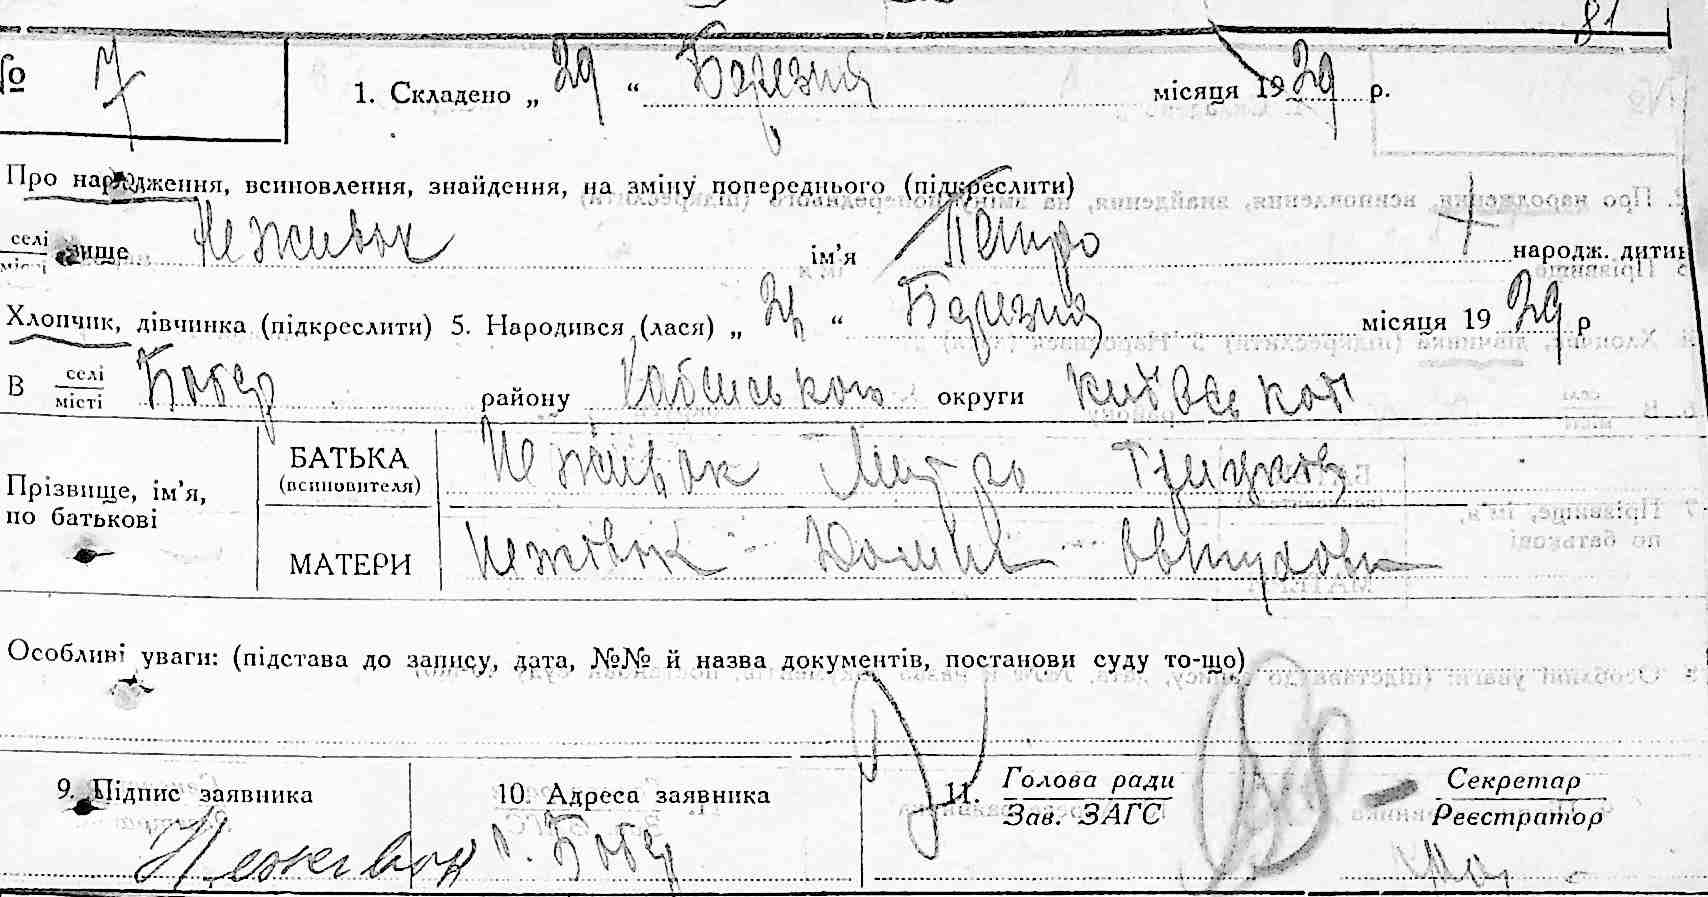 81
№ 7 1. Складено „ 29 “ Березня місяця 1929 р.
Про народження, всиновлення, знайдення, на зміну попереднього (підкреслити)
Неживок ім'я Петро народж. дитин
Хлопчик, дівчинка (підкреслити) 5. Народився (лася) „ “ Березня місяця 1929 р
В селі місті Бобер району округи Київської
Прізвище, ім'я, по батькові
БАТЬКА (всиновителя) Неживок Митро
МАТЕРИ Неживок
Особливі уваги: (підстава до запису, дата, №№ й назва документів, постанови суду то-що)
9. Підпис заявника 10. Адреса заявника 11. Голова ради Секретар
Зав. ЗАГС Реєстратор
Неживок с. Бобер